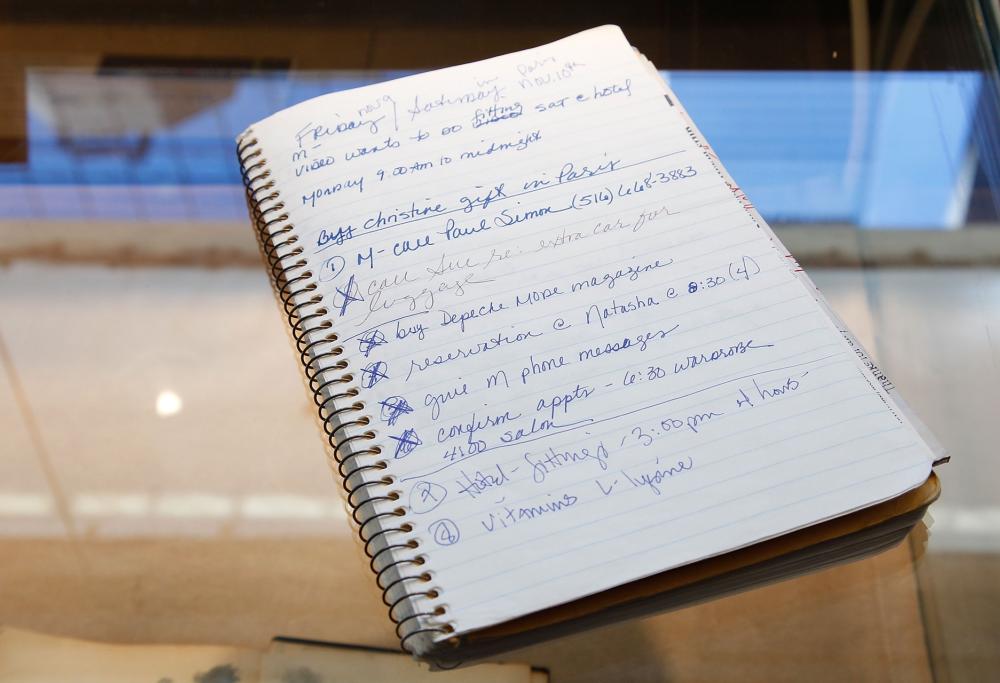 Friday Nov 9 / Saturday in Paris Nov. 10th
M- video wants to do fitting sat @ hotel
Monday 9:00 Am to midnight
Buy christine gift in Paris
① M- call Paul Simon (516) 668-3883
call Sue re: extra car for
luggage
buy Depeche Mode magazine
reservation @ Natasha @ 8:30 (4)
give M phone messages
confirm appts - 6:30 wardrobe
4:00 salon
② Hotel - fittings - 3:00 pm
④ vitamins L-lysine
Thank